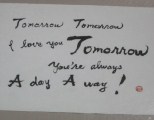 Tomorrow Tomorrow
I love you Tomorrow
You're always
A day A way!